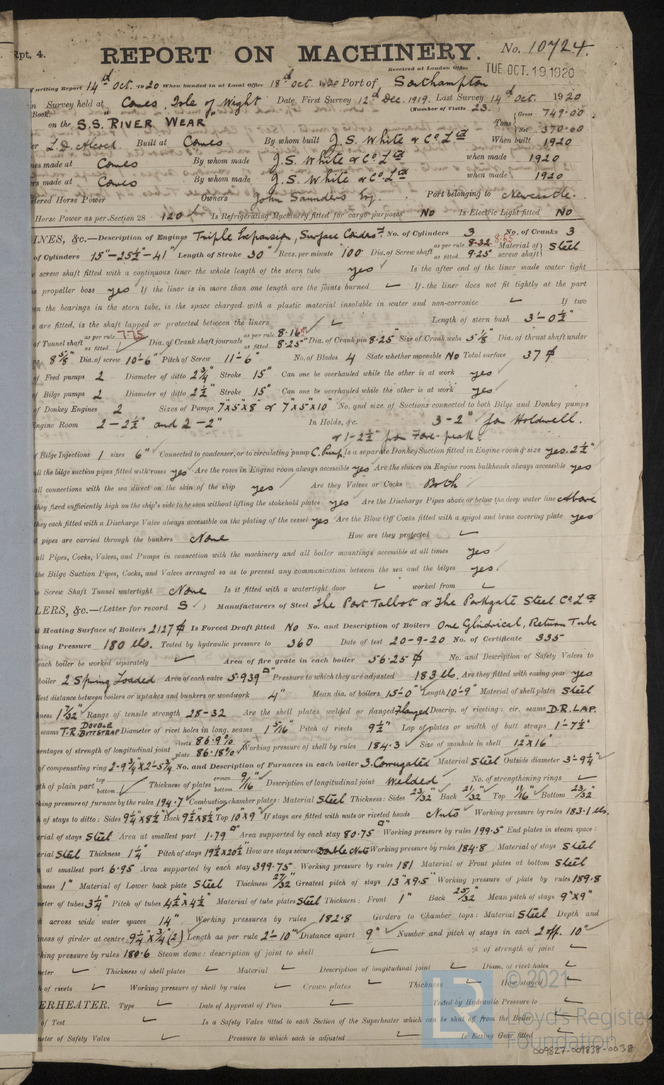 Rpt. 4.
REPORT ON MACHINERY. No. 10724.
Received at London Office TUE. OCT. 19 1920
writing Report 14th Oct. 1920 When handed in at Local Office 18th Oct. 1920 Port of Southampton
Survey held at Cowes, Isle of Wight Date, First Survey 12th Dec. 1919. Last Survey 14th Oct. 1920
Book. (Number of Visits 23.
on the S.S. "RIVER WEAR" Tons Gross 749.00 Net 370.00
Built at Cowes By whom built J.S. White & Co Ltd When built 1920
made at Cowes By whom made J.S. White & Co Ltd when made 1920
made at Cowes By whom made J.S. White & Co Ltd when made 1920
Horse Power Owners John Saunders Esq. Port belonging to Newcastle.
Horse Power as per Section 28 120 Is Refrigerating Machinery fitted for cargo purposes No Is Electric Light fitted No
INES, &c.—Description of Engines Triple Expansion, Surface Condenser. No. of Cylinders 3 No. of Cranks 3
of Cylinders 15"-25½-41" Length of Stroke 30" Revs. per minute 100 Dia. of Screw shaft as per rule 8.32 8.65 as fitted 9.25" Material of screw shaft Steel
screw shaft fitted with a continuous liner the whole length of the stern tube yes Is the after end of the liner made water tight
propeller boss yes If the liner is in more than one length are the joints burned If the liner does not fit tightly at the part
the bearings in the stern tube, is the space charged with a plastic material insoluble in water and non-corrosive If two
are fitted, is the shaft lapped or protected between the liners Length of stern bush 3'-0½"
of Tunnel shaft as per rule 7.75 as fitted Dia. of Crank shaft journals as per rule 8.16 as fitted 8.25" Dia. of Crank pin 8.25" Size of Crank webs 5⅛ Dia. of thrust shaft under
8⅝" Dia. of screw 10'-6" Pitch of Screw 11'-6" No. of Blades 4 State whether moveable No Total surface 37
of Feed pumps 2 Diameter of ditto 2¾" Stroke 15" Can one be overhauled while the other is at work yes
of Bilge pumps 2 Diameter of ditto 2½" Stroke 15" Can one be overhauled while the other is at work yes
of Donkey Engines 2 Sizes of Pumps 7"x5"x8" & 7"x5"x10" No. and size of Suctions connected to both Bilge and Donkey pumps
Engine Room 2-2½" and 2-2" In Holds, &c. 3-2" for Holdwell.
& 1-2½" for Fore-peak.
of Bilge Injections 1 sizes 6" Connected to condenser, or to circulating pump C. Pump Is a separate Donkey Suction fitted in Engine room & size yes. 2½"
all the bilge suction pipes fitted with roses yes Are the roses in Engine room always accessible yes Are the sluices on Engine room bulkheads always accessible yes
all connections with the sea direct on the skin of the ship yes Are they Valves or Cocks Both
they fixed sufficiently high on the ship's side to be seen without lifting the stokehold plates yes Are the Discharge Pipes above or below the deep water line Above
they each fitted with a Discharge Valve always accessible on the plating of the vessel yes Are the Blow Off Cocks fitted with a spigot and brass covering plate yes
pipes are carried through the bunkers None How are they protected
all Pipes, Cocks, Valves, and Pumps in connection with the machinery and all boiler mountings accessible at all times yes
the Bilge Suction Pipes, Cocks, and Valves arranged so as to prevent any communication between the sea and the bilges yes.
Screw Shaft Tunnel watertight None Is it fitted with a watertight door worked from
LERS, &c.—(Letter for record S) Manufacturers of Steel The Port Talbot & The Parkgate Steel Co Ltd
Heating Surface of Boilers 2127 Is Forced Draft fitted No No. and Description of Boilers One Cylindrical, Return Tube
king Pressure 180 lbs. Tested by hydraulic pressure to 360 Date of test 20-9-20 No. of Certificate 335
each boiler be worked separately Area of fire grate in each boiler 56.25 No. and Description of Safety Valves to
boiler 2 Spring Loaded Area of each valve 5.939 Pressure to which they are adjusted 183 lbs. Are they fitted with easing gear yes
distance between boilers or uptakes and bunkers or woodwork 4" Mean dia. of boilers 15'-0" Length 10'-9" Material of shell plates Steel
1 7/32" Range of tensile strength 28-32 Are the shell plates welded or flanged Flanged Descrip. of riveting: cir. seams D.R. LAP.
seams T.R. DOUBLE BUTT STRAP Diameter of rivet holes in long. seams 1 5/16" Pitch of rivets 9½" Lap of plates or width of butt straps 1'-7½"
centages of strength of longitudinal joint rivets 86.9% plate 86.18% Working pressure of shell by rules 184.3 Size of manhole in shell 12"x16"
of compensating ring 2'-9¾"x2'-5¾" No. and Description of Furnaces in each boiler 3. Corrugated Material Steel Outside diameter 3'-9¼"
of plain part top bottom Thickness of plates crown bottom 9/16" Description of longitudinal joint Welded No. of strengthening rings
king pressure of furnace by the rules 194.7 Combustion chamber plates: Material Steel Thickness: Sides 23/32" Back 21/32" Top 11/16" Bottom 23/32"
of stays to ditto: Sides 9¼"x8½" Back 9½"x8½" Top 10"x9" If stays are fitted with nuts or riveted heads Nuts Working pressure by rules 183.1 lbs.
erial of stays Steel Area at smallest part 1.79 Area supported by each stay 80.75 Working pressure by rules 199.5 End plates in steam space:
erial Steel Thickness 1¼" Pitch of stays 19½"x20½" How are stays secured Double Nuts Working pressure by rules 184.8 Material of stays Steel
at smallest part 6.95 Area supported by each stay 399.75 Working pressure by rules 181 Material of Front plates at bottom Steel
kness 1" Material of Lower back plate Steel Thickness 27/32 Greatest pitch of stays 13"x9.5" Working pressure of plate by rules 189.8
meter of tubes 3¼" Pitch of tubes 4½"x4½" Material of tube plates Steel Thickness: Front 1" Back 25/32" Mean pitch of stays 9"x9"
across wide water spaces 14" Working pressures by rules 182.8 Girders to Chamber tops: Material Steel Depth and
ness of girder at centre 9¼"x¾"(2) Length as per rule 2'-10" Distance apart 9" Number and pitch of stays in each 2 off. 10"
king pressure by rules 180.6 Steam dome: description of joint to shell % of strength of joint
meter Thickness of shell plates Material Description of longitudinal joint Diam. of rivet holes
of rivets Working pressure of shell by rules Crown plates Thickness How stayed
ERHEATER. Type Date of Approval of Plan Tested by Hydraulic Pressure to
of Test Is a Safety Valve fitted to each Section of the Superheater which can be shut off from the Boiler
meter of Safety Valve Pressure to which each is adjusted Is Easing Gear fitted
© 2021
Lloyd's Register
Foundation
009827-009838-0038